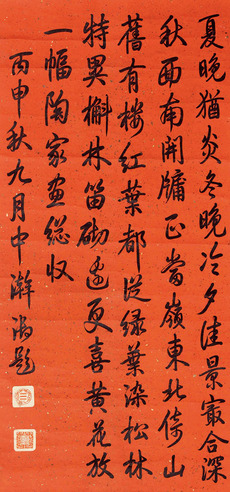 夏晚猶炎冬晚冷夕佳景最合深
秋西南開牖正當嶺東北倚山
舊有楼紅葉都從緑葉染松林
特異槲林笛砌邊更喜黄花放
一幅陶家画總收
丙申秋九月中澣 題